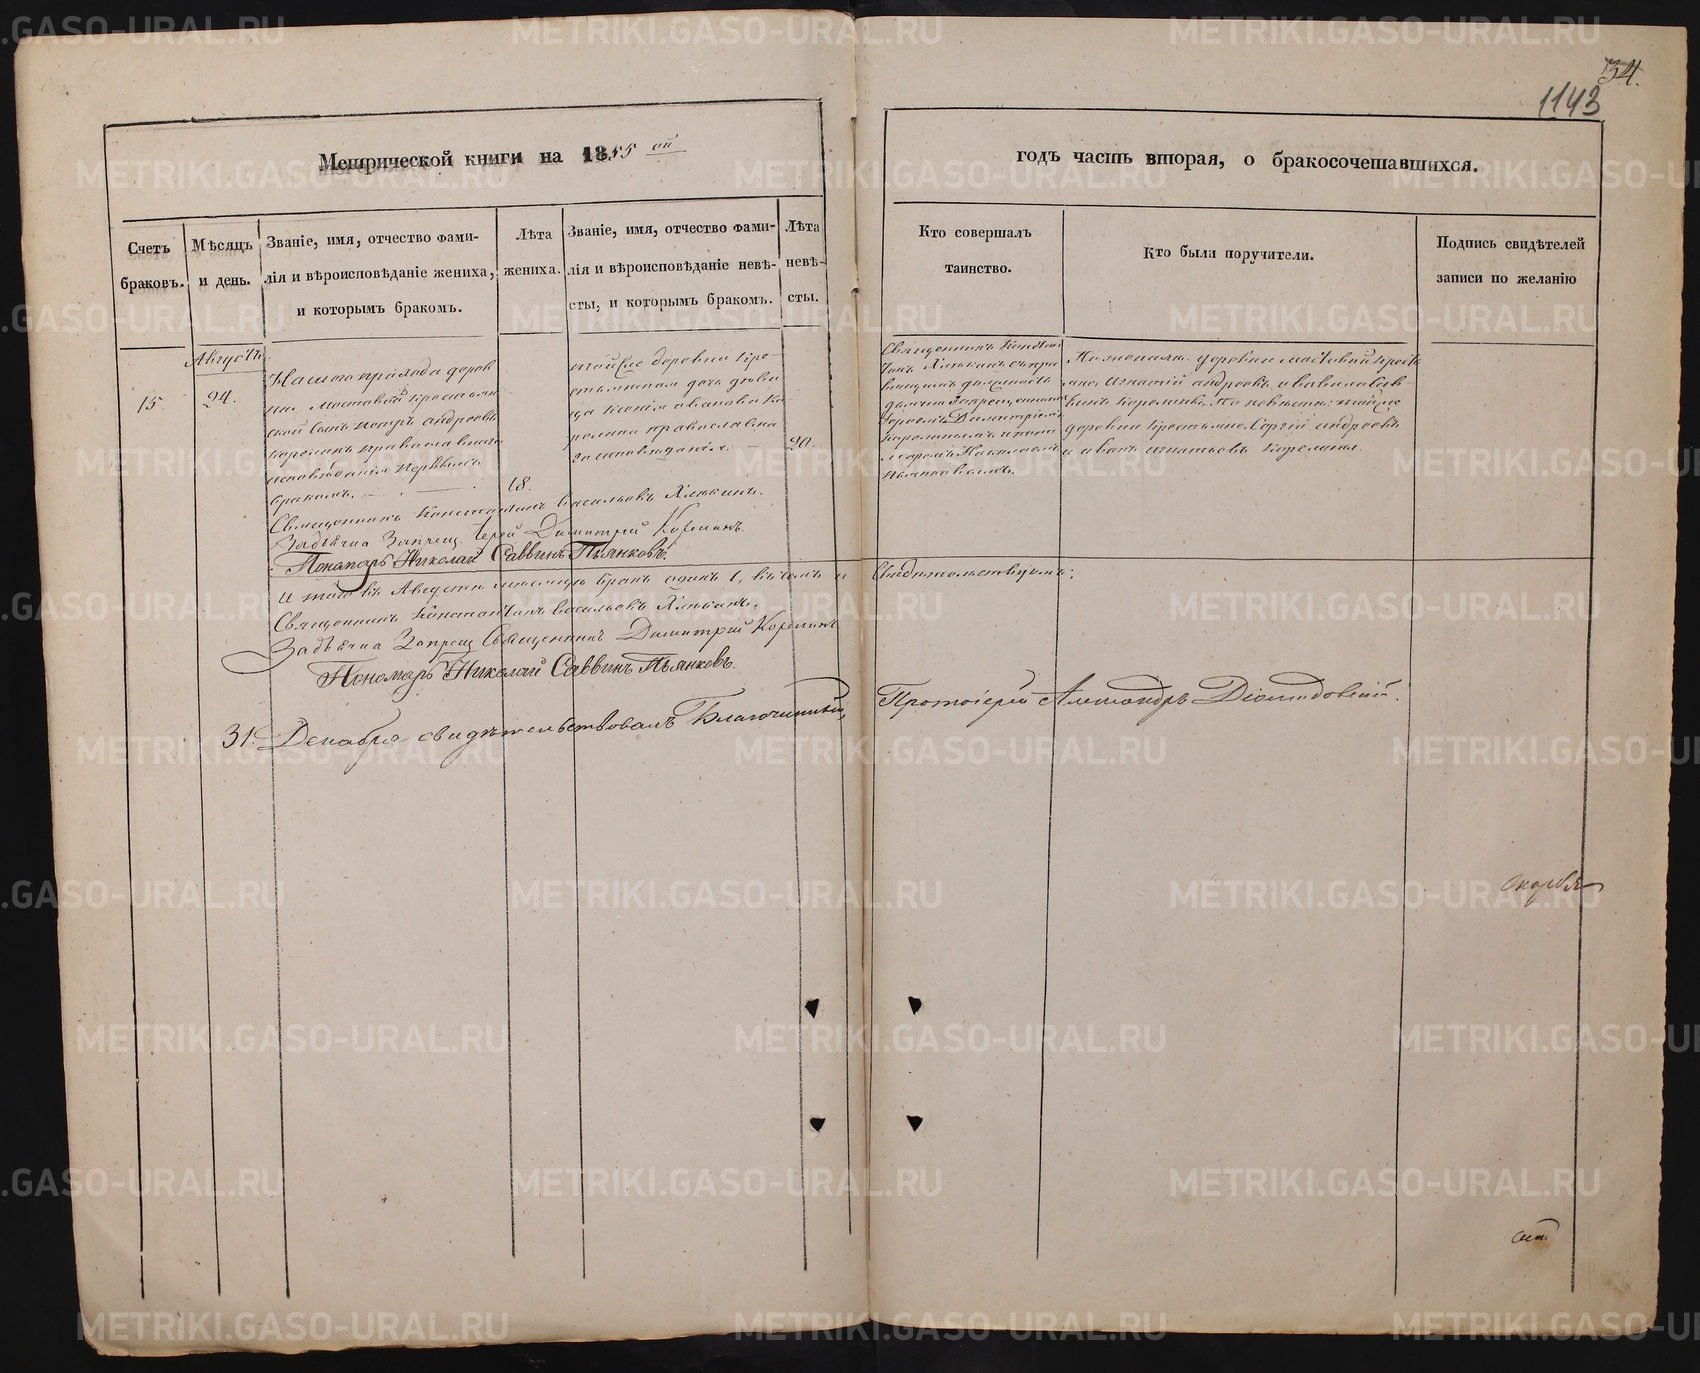 34.
1143
Метрической книги на 1855 ой
годъ часть вторая, о бракосочетавшихся.
Счетъ
браковъ.
Мѣсяцъ
и день.
Званіе, имя, отчество фами-
лія и вѣроисповѣданіе жениха,
и которымъ бракомъ.
Лѣта
жениха.
Званіе, имя, отчество фами-
лія и вѣроисповѣданіе невѣ-
сты, и которымъ бракомъ.
Лѣта
невѣ-
сты.
Кто совершалъ
таинство.
Кто были поручители.
Подпись свидѣтелей
записи по желанію
Августъ
15
24.
Нашего прихода дерев
ни Мостовой крестьян
ской сынъ Петръ Андреевъ
Корелинъ православнаго
исповѣданія первымъ
бракомъ.
18.
тойже деревни кре-
стьянина дочь дѣви
ца Ксенія Иванова Ко
релина православна
го исповѣданія.
20.
Священникъ Констан
тинъ Хлынинъ
Запрещеннымъ
Іереемъ Димитріемъ
Корелинымъ и поно
маремъ Николаемъ
Пьянковымъ.
По женихѣ: деревни Мостовой кресть
яне Игнатій Андреевъ и Вавила
Корелины. По невѣстѣ: тойже
деревни крестьяне Сергій Андреевъ
и Иванъ Игнатьевъ Корелины.
Священникъ Константинъ Васильевъ Хлынинъ.
Задьячка Запрещ. Іерей Димитрій Корелинъ.
Пономарь Николай Саввинъ Пьянковъ.
Итого въ Августѣ мѣсяцѣ бракъ одинъ 1, въ чемъ и свидѣтельствуемъ:
Священникъ Константинъ Васильевъ Хлынинъ.
Задьячка Запрещ Священникъ Димитрій Корелинъ
Пономарь Николай Саввинъ Пьянковъ.
31. Декабря свидѣтельствовалъ Благочинный, Протоіерей Александръ Діомидовскій.
METRIKI.GASO-URAL.RU